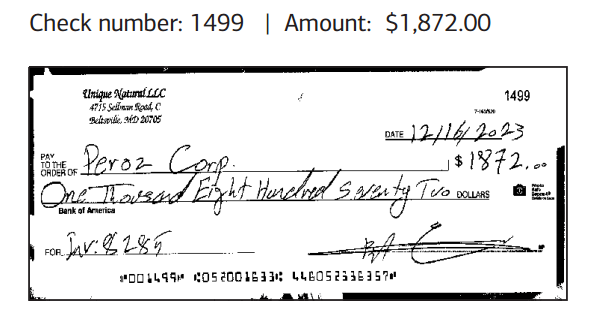 Check number: 1499 | Amount: $1,872.00
Unique Natural LLC
4715 Sellman Road, C
Beltsville, MD 20705
1499
DATE 12/16/2023
PAY TO THE ORDER OF Peroz Corp. $ 1872.00
One Thousand Eight Hundred Seventy Two DOLLARS
Bank of America
FOR Inv: 8285
⑈001499⑈ ⑆052001633⑆ 446052336357⑈